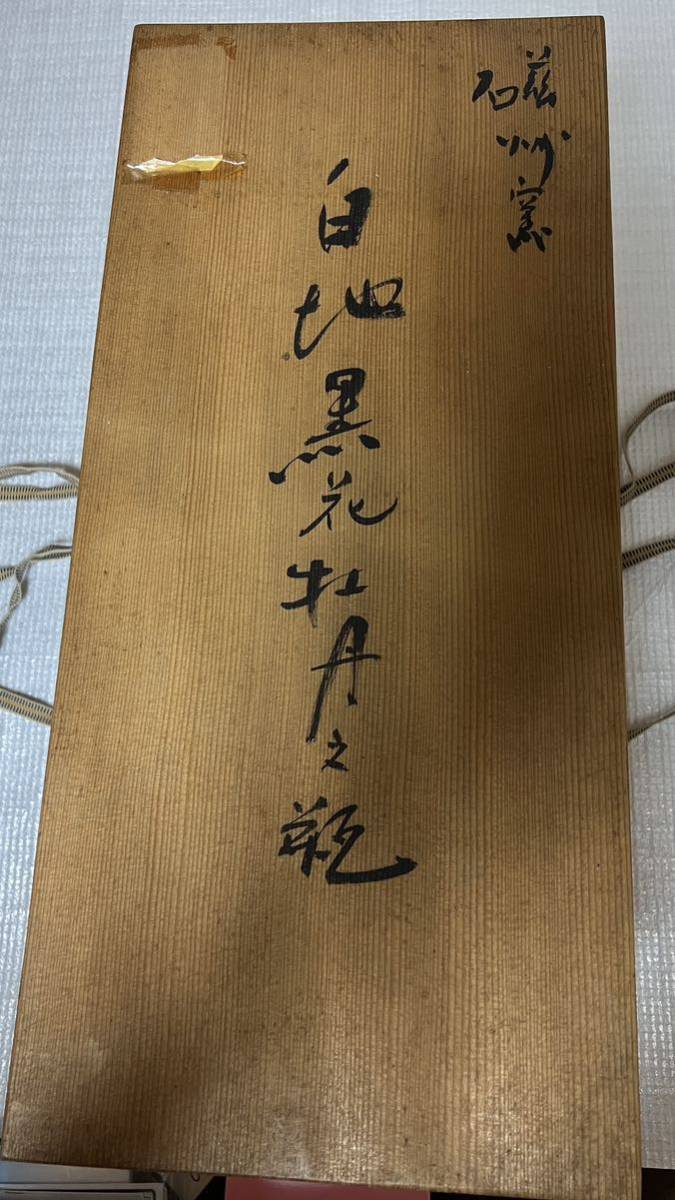 磁州窯
白地黒花牡丹文瓶